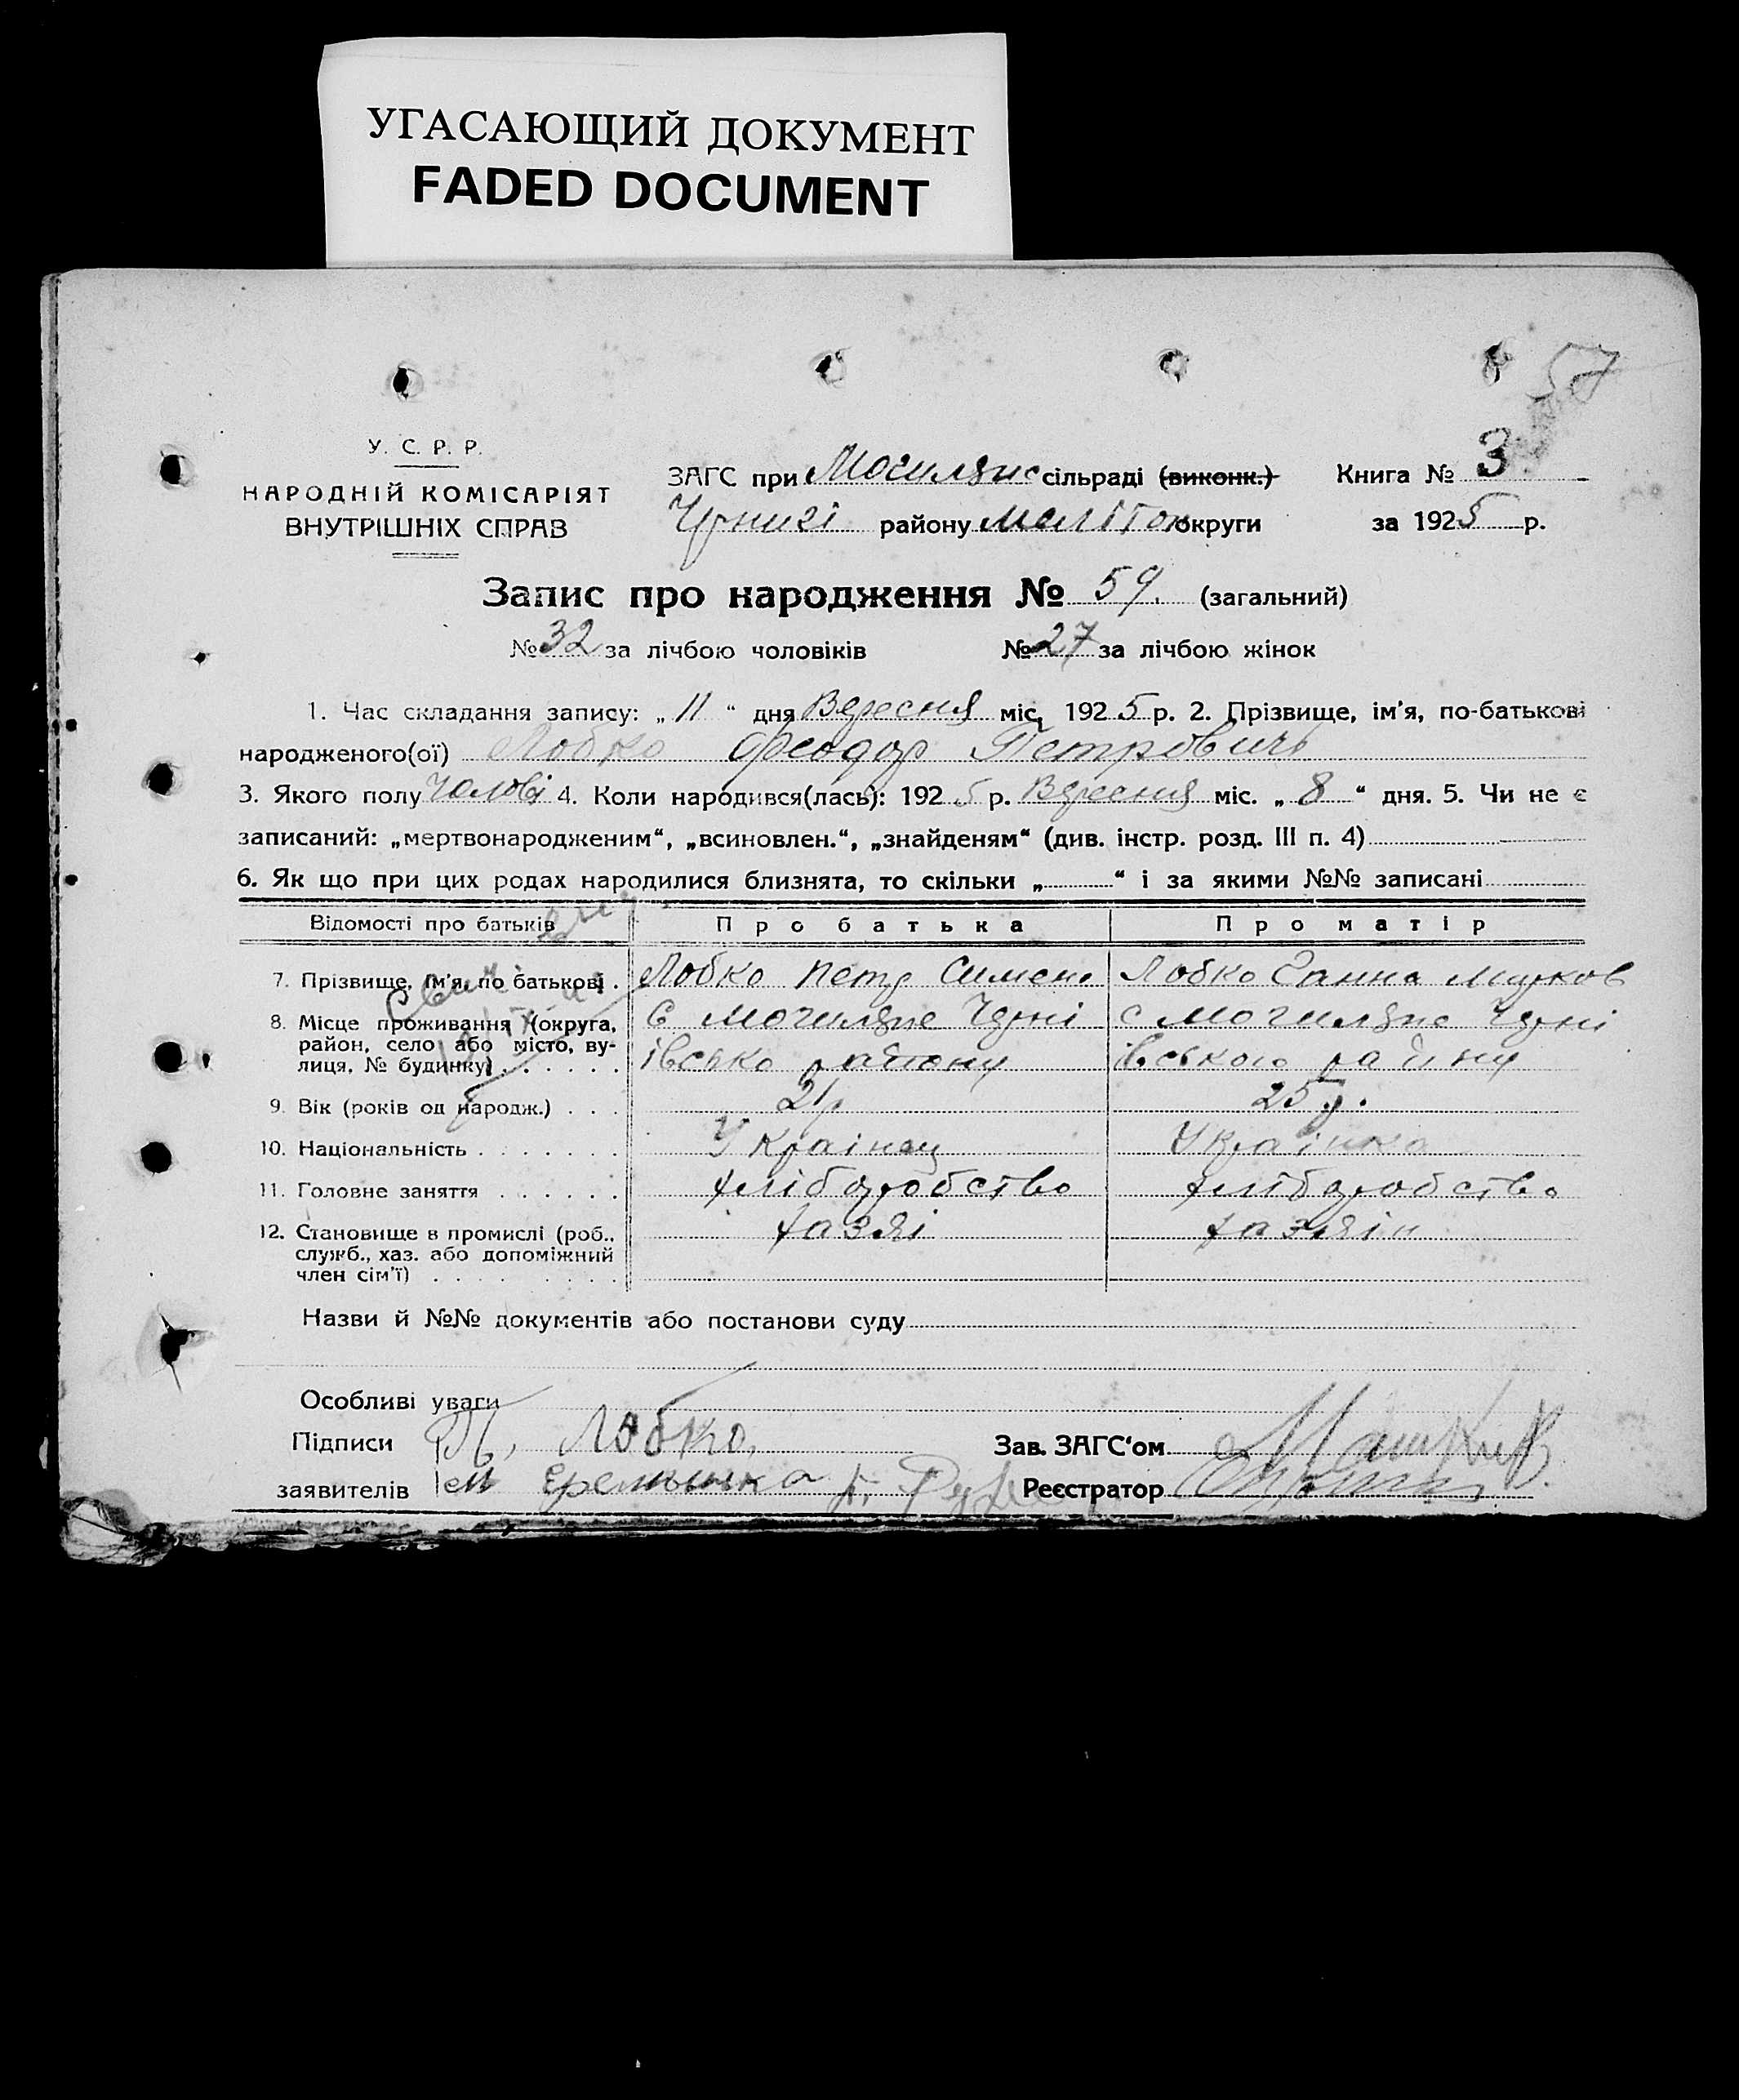 УГАСАЮЩИЙ ДОКУМЕНТ
FADED DOCUMENT
57
У. С. Р. Р.
НАРОДНІЙ КОМІСАРІЯТ
ВНУТРІШНІХ СПРАВ
ЗАГС при сільраді (виконк.) Книга № 3
району округи за 1925 р.
Запис про народження № 59. (загальний)
№ 32 за лічбою чоловіків № 27 за лічбою жінок
1. Час складання запису: „ 11 “ дня Вересня міс, 1925 р. 2. Прізвище, ім'я, по-батькові
народженого(ої) Лобко Феодор Петрович
3. Якого полу Чолові 4. Коли народився(лась): 1925 р. Вересня міс. „ 8 “ дня. 5. Чи не є
записаний: „мертвонародженим“, „всиновлен.“, „знайденям“ (див. інстр. розд. III п. 4)
6. Як що при цих родах народилися близнята, то скільки „ “ і за якими №№ записані
Відомості про батьків Про батька Про матір
7. Прізвище, ім'я, по батькові . Лобко Петр Симено Лобко Ганна Марков
8. Місце проживання (округа, с с
район, село або місто, ву- івсько району івського району
лиця, № будинку) . . . . . .
9. Вік (років од народж.) . . . 21р 25р.
10. Національність . . . . . . . Украінец Украінка
11. Головне заняття . . . . . . хліборобство хліборобство
12. Становище в промислі (роб., хазяі хазяін
служб., хаз. або допоміжний
член сім'ї) . . . . . . . . .
Назви й №№ документів або постанови суду
Особливі уваги
Підписи П. Лобко. Зав. ЗАГС'ом
заявителів Реєстратор